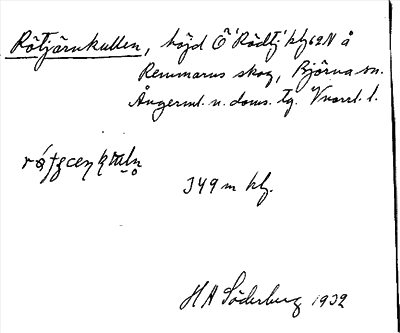 Rötjärnkullen, höjd Ö Rödtj kfz 62N å
Remmarns skog, Björna sn.
Ångerml. n. doms. tg. Vnorrl. l.
349 m kfz.
H A Söderberg 1932